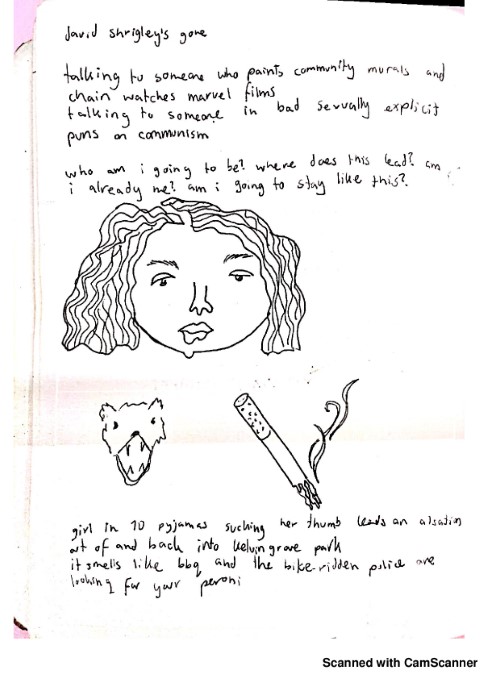 david shrigley's gone
talking to someone who paints community murals and
chain watches marvel films
talking to someone in bad sexually explicit
puns on communism
who am i going to be? where does this lead? am
i already me? am i going to stay like this?
girl in pyjamas sucking her thumb leads an alsatian
out of and back into kelvingrove park
it smells like bbq and the bike-ridden police are
looking for your peroni
Scanned with CamScanner